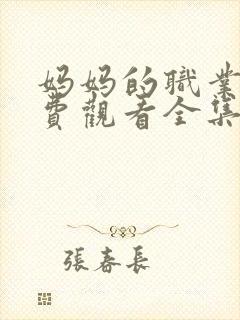 媽媽的職業
費觀看全集
張春長